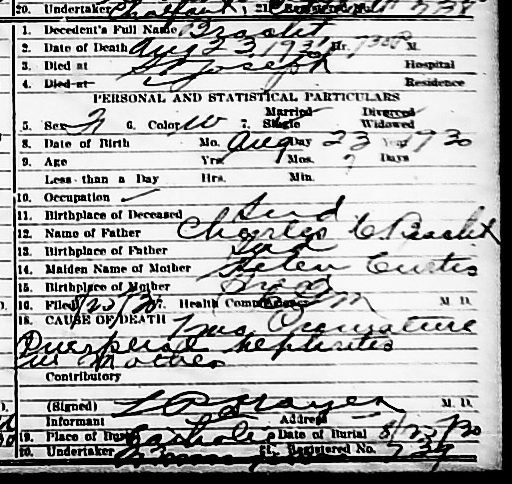 20. Undertaker Chalfant 21. Registered No. 738
1. Decedent's Full Name Bracht
2. Date of Death Aug 23 1930 Hr. 730P M.
3. Died at St Joseph Hospital
4. Died at Residence
PERSONAL AND STATISTICAL PARTICULARS
Married Divorced
5. Sex F 6. Color W 7. Single Widowed
8. Date of Birth Mo. Aug Day 23 Year 1930
9. Age Yrs. Mos. Days
Less than a Day Hrs. Min.
10. Occupation
11. Birthplace of Deceased Ind
12. Name of Father Charles C. Bracht
13. Birthplace of Father Ind
14. Maiden Name of Mother Helen Curtis
15. Birthplace of Mother
16. Filed 8/25/30 17. Health Commissioner M. D.
18. CAUSE OF DEATH 7 mo Premature
Puerperal nephritis
in Mother
Contributory
(Signed) M. D.
Informant Address
19. Place of Burial Catholic Date of Burial 8/25/30
20. Undertaker 21. Registered No. 739